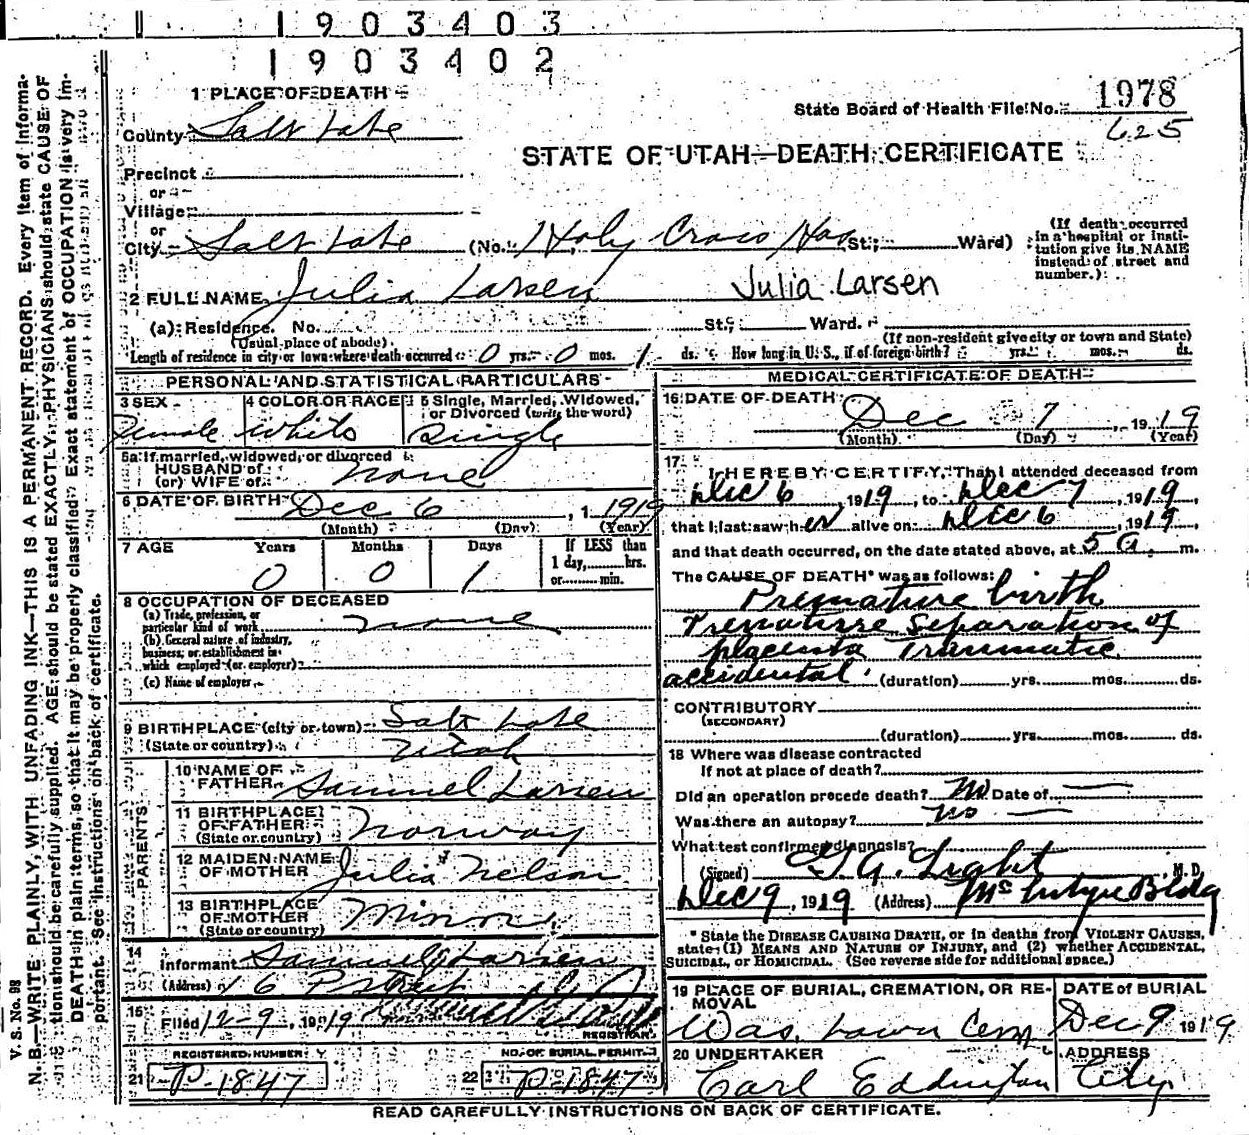 1903403
1903402
1 PLACE OF DEATH
State Board of Health File No. 1978
County Salt Lake
625
STATE OF UTAH—DEATH CERTIFICATE
Precinct
or
Village
or
City Salt Lake (No. Holy Cross Hos St.; Ward)
(If death occurred in a hospital or institution give its NAME instead of street and number.)
2 FULL NAME Julia Larsen Julia Larsen
(a) Residence. No. St.; Ward.
(Usual place of abode) (If non-resident give city or town and State)
Length of residence in city or town where death occurred 0 yrs. 0 mos. 1 ds. How long in U. S., if of foreign birth? yrs. mos. ds.
PERSONAL AND STATISTICAL PARTICULARS
3 SEX 4 COLOR OR RACE 5 Single, Married, Widowed, or Divorced (write the word)
Female White Single
5a If married, widowed, or divorced
HUSBAND of
(or) WIFE of none
6 DATE OF BIRTH Dec 6, 1 1919
(Month) (Day) (Year)
7 AGE Years Months Days If LESS than 1 day, hrs. or min.
0 0 1
8 OCCUPATION OF DECEASED
(a) Trade, profession, or particular kind of work none
(b) General nature of industry, business, or establishment in which employed (or employer)
(c) Name of employer
9 BIRTHPLACE (city or town) Salt Lake
(State or country) Utah
PARENTS
10 NAME OF FATHER Samuel Larsen
11 BIRTHPLACE OF FATHER (State or country) Norway
12 MAIDEN NAME OF MOTHER Julia Nelson
13 BIRTHPLACE OF MOTHER (State or country) Minn
14
Informant Samuel Larsen
(Address) 16 P street
15
Filed 12-9, 1919
REGISTRAR
REGISTERED NUMBER NO. OF BURIAL PERMIT
21 P-1847 22 P-1847
MEDICAL CERTIFICATE OF DEATH
16 DATE OF DEATH
Dec 7, 1919
(Month) (Day) (Year)
17
I HEREBY CERTIFY, That I attended deceased from
Dec 6 1919, to Dec 7, 1919,
that I last saw her alive on Dec 6, 1919,
and that death occurred, on the date stated above, at 5 a. m.
The CAUSE OF DEATH* was as follows:
Premature birth
Premature Separation of
placenta Traumatic
accidental. (duration) yrs. mos. ds.
CONTRIBUTORY
(SECONDARY)
(duration) yrs. mos. ds.
18 Where was disease contracted
If not at place of death?
Did an operation precede death? No Date of —
Was there an autopsy? no —
What test confirmed diagnosis?
(Signed) G. A. Light, M. D.
Dec 9, 1919 (Address) McIntyre Bldg
* State the DISEASE CAUSING DEATH, or in deaths from VIOLENT CAUSES,
state (1) MEANS AND NATURE OF INJURY, and (2) whether ACCIDENTAL,
SUICIDAL, or HOMICIDAL. (See reverse side for additional space.)
19 PLACE OF BURIAL, CREMATION, OR REMOVAL DATE of BURIAL
Was. Lawn Cem Dec 9 1919
20 UNDERTAKER ADDRESS
Carl Eddington City
READ CAREFULLY INSTRUCTIONS ON BACK OF CERTIFICATE.
V. S. No. 98
N. B.—WRITE PLAINLY, WITH UNFADING INK—THIS IS A PERMANENT RECORD. Every item of information should be carefully supplied. AGE should be stated EXACTLY. PHYSICIANS should state CAUSE OF DEATH in plain terms, so that it may be properly classified. Exact statement of OCCUPATION is very important. See instructions on back of certificate.